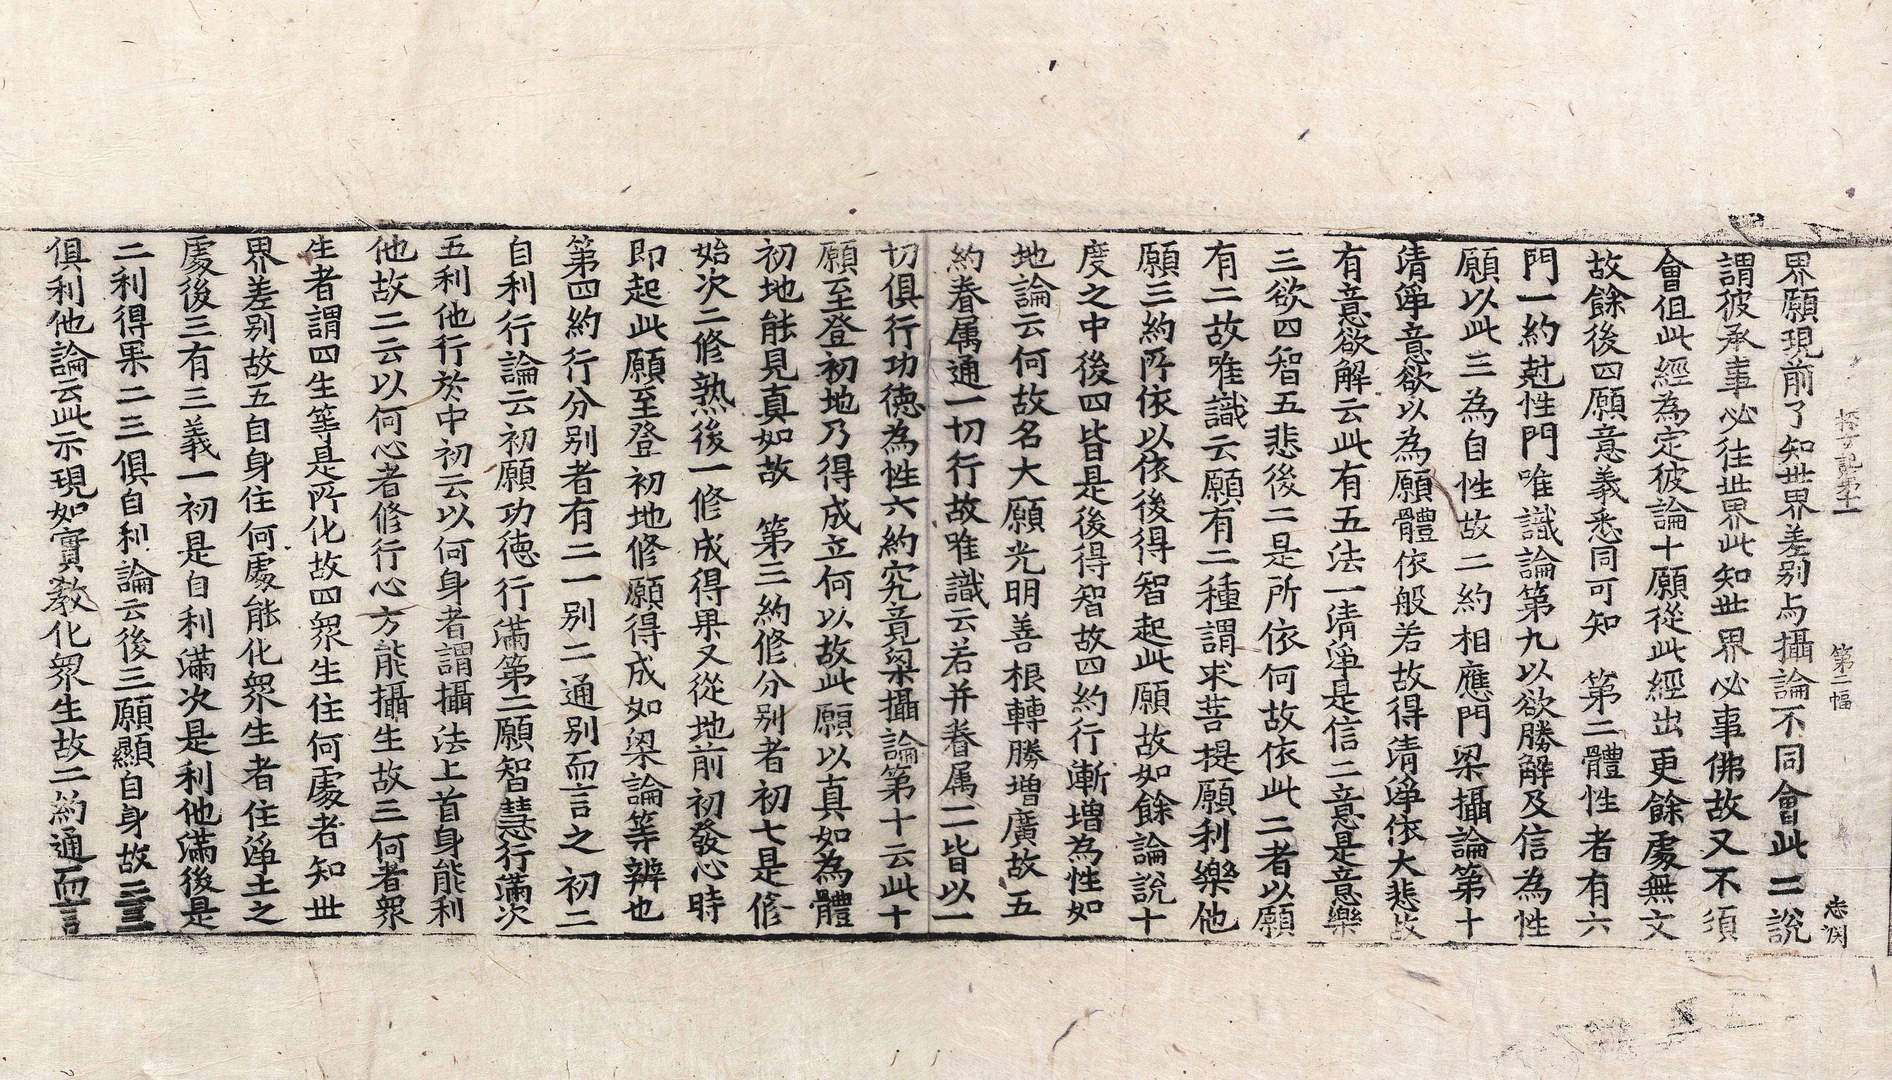 探玄記第十一 第二幅 志淵
界願現前了知世界差别与攝論不同會此二說
謂彼承事必往世界此知世界必事佛故又不須
會但此經為定彼論十願從此經出更餘處無文
故餘後四願意義悉同可知 第二體性者有六
門一約剋性門唯識論第九以欲勝解及信為性
願以此三為自性故二約相應門梁攝論第十
清淨意欲以為願體依般若故得清淨依大悲故
有意欲解云此有五法一清淨是信二意是意樂
三欲四智五悲後二是所依何故依此二者以願
有二故唯識云願有二種謂求菩提願利樂他
願三約所依以依後得智起此願故如餘論說十
度之中後四皆是後得智故四約行漸增為性如
地論云何故名大願光明善根轉勝增廣故五
約眷属通一切行故唯識云若并眷属一皆以一
切俱行功德為性六約究竟梁攝論第十云此十
願至登初地乃得成立何以故此願以真如為體
初地能見真如故 第三約修分别者初七是修
始次二修熟後一修成得果又從地前初發心時
即起此願至登初地修願得成如梁論等辨也
第四約行分别者有二一别二通别而言之初二
自利行論云初願功德行滿第二願智慧行滿次
五利他行於中初云以何身者謂攝法上首身能利
他故二云以何心者修行心方能攝生故三何者衆
生者謂四生等是所化故四衆生住何處者知世
界差别故五自身住何處能化衆生者住淨土之
處後三有三義一初是自利滿次是利他滿後是
二利得果二三俱自利論云後三願顯自身故三三
俱利他論云此示現如實教化衆生故二約通而言